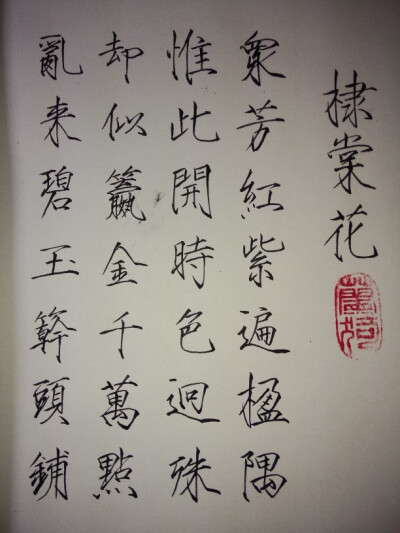 棣棠花
眾芳紅紫遍楹隅
惟此開時色迥殊
却似籝金千萬點
亂来碧玉簳頭鋪